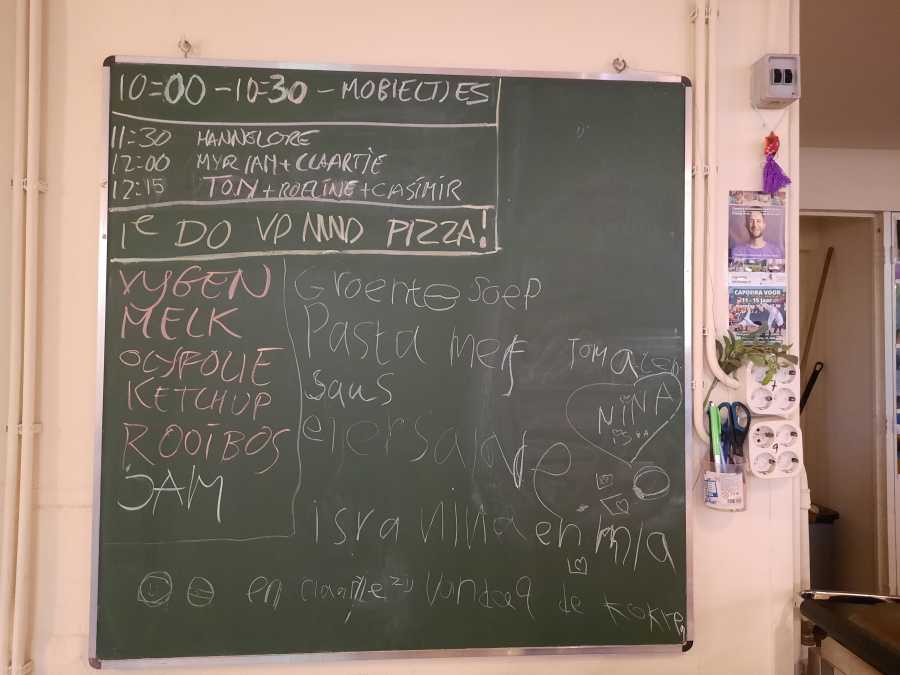 10=00 - 10=30 - MOBIEL(TJ)ES
11=30 HANNELORE
12=00 MYRIAM + CLAARTJE
12=15 TONY + ROELINE + CASIMIR
1e DO VD MND PIZZA!
VYGEN
MELK
OLYFOLIE
KETCHUP
ROOIBOS
JAM
Groente soep
Pasta met Tomaten
saus
eiersalade
NINA
isra nina en mia
en claartje zijn vandaag de kokken
CAPOEIRA VOOR
11 - 15 jaar